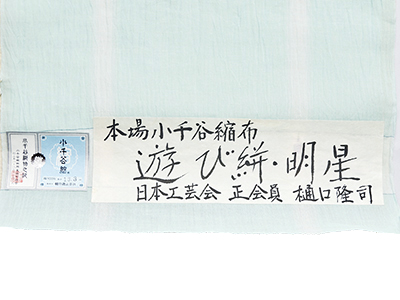 本場小千谷縮布
遊び絣・明星
日本工芸会 正会員 樋口隆司
小千谷縮